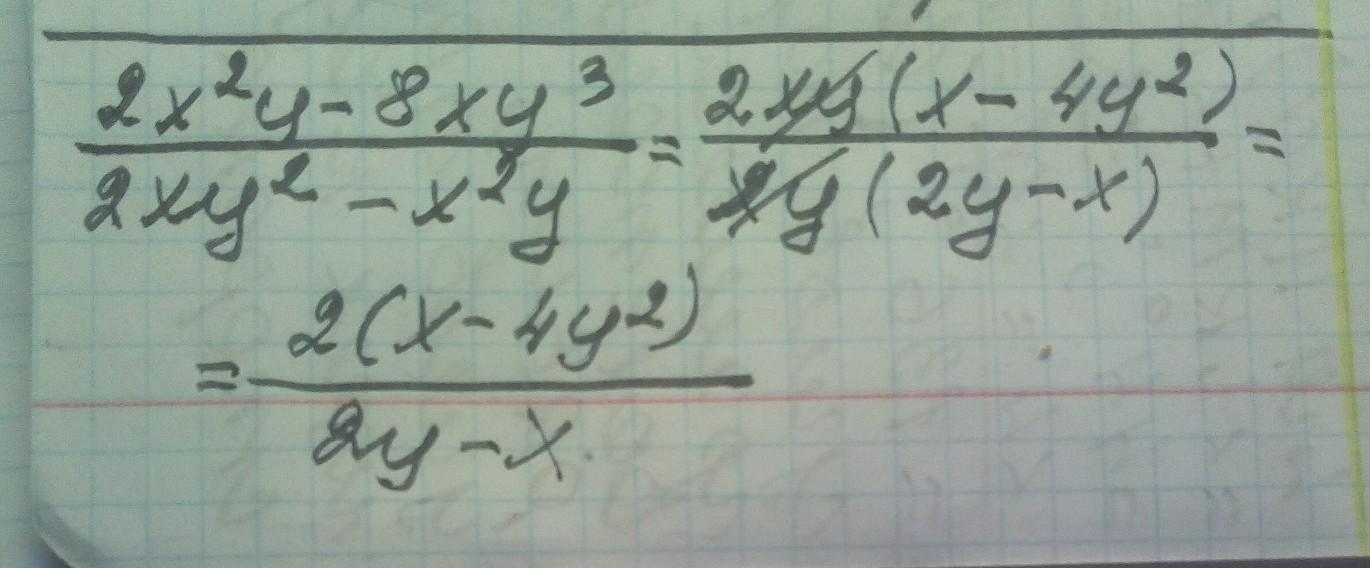 2x²y - 8xy³ / 2xy² - x²y = 2xy(x - 4y²) / xy(2y - x) =
= 2(x - 4y²) / 2y - x